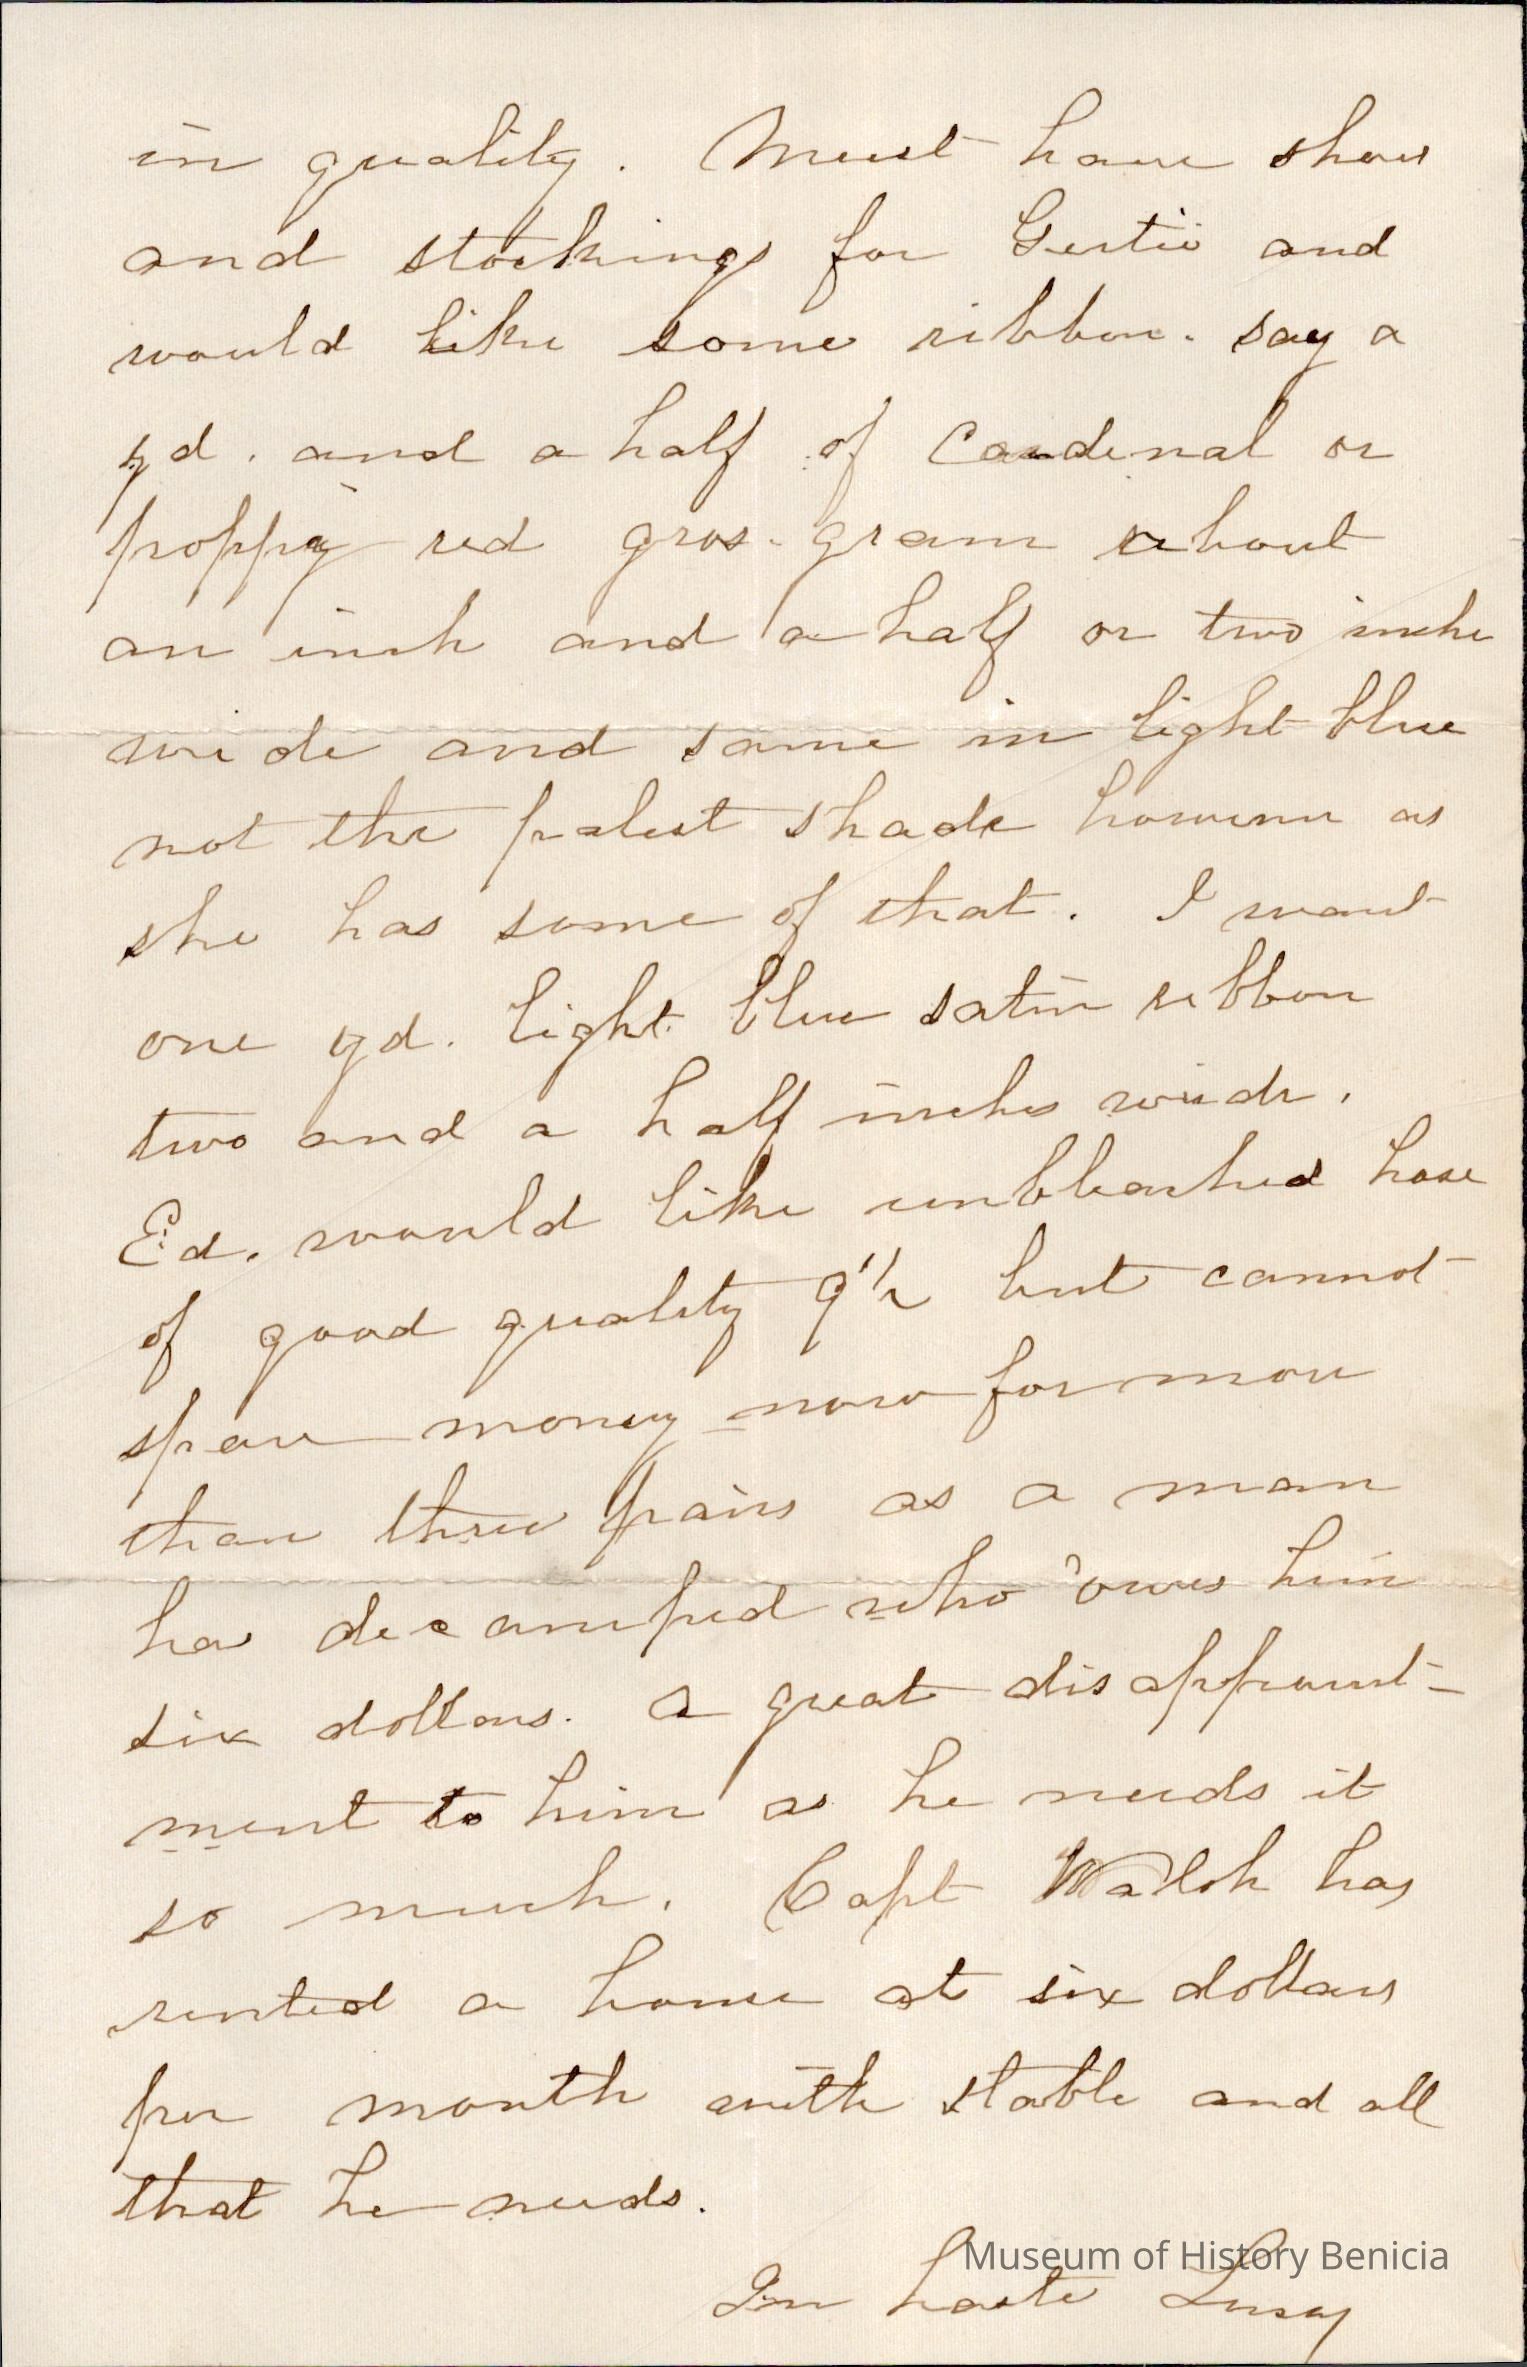 in quality. Must have shoes
and stockings for Gertie and
would like some ribbon. say a
yd. and a half of Cardinal or
poppy red gros-grain about
an inch and a half or two inche
wide and same in light blue
not the palest shade however as
she has some of that. I want
one yd. light blue satin ribbon
two and a half inches wide.
Ed. would like unbleached hose
of good quality 9 1/2 but cannot
spare money now for more
than three pairs as a man
has decamped who owes him
six dollars. A great disappoint-
ment to him as he needs it
so much. Capt Walsh has
rented a house at six dollars
per month with stable and all
that he needs.
Museum of History Benicia
In haste Lucy